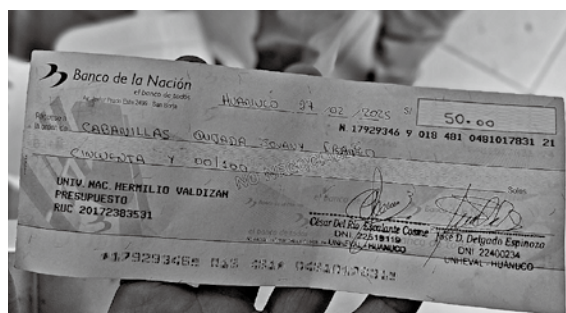 Banco de la Nación
el banco de todos
HUANUCO 07 02 2025 S/ 50.00
N 17929346 9 018 481 0481017831 21
CABANILLAS QUIJADA
CINCUENTA Y 00/100
NO NEGOCIABLE
Soles
UNIV. NAC. HERMILIO VALDIZAN
PRESUPUESTO
RUC 20172383531
César Del Río Escalante Cosme
DNI 22519119
UNHEVAL-HUANUCO
José D. Delgado Espinoza
DNI 22400234
UNHEVAL - HUÁNUCO